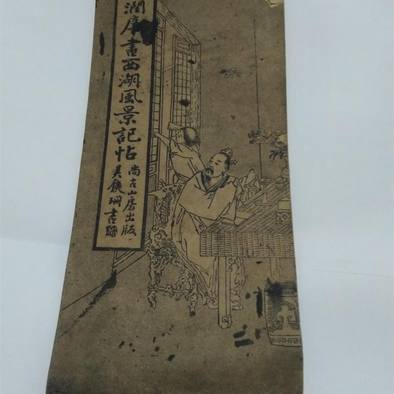 潤庠書西湖風景記帖
尚古山房出版
吳鏡珊書題